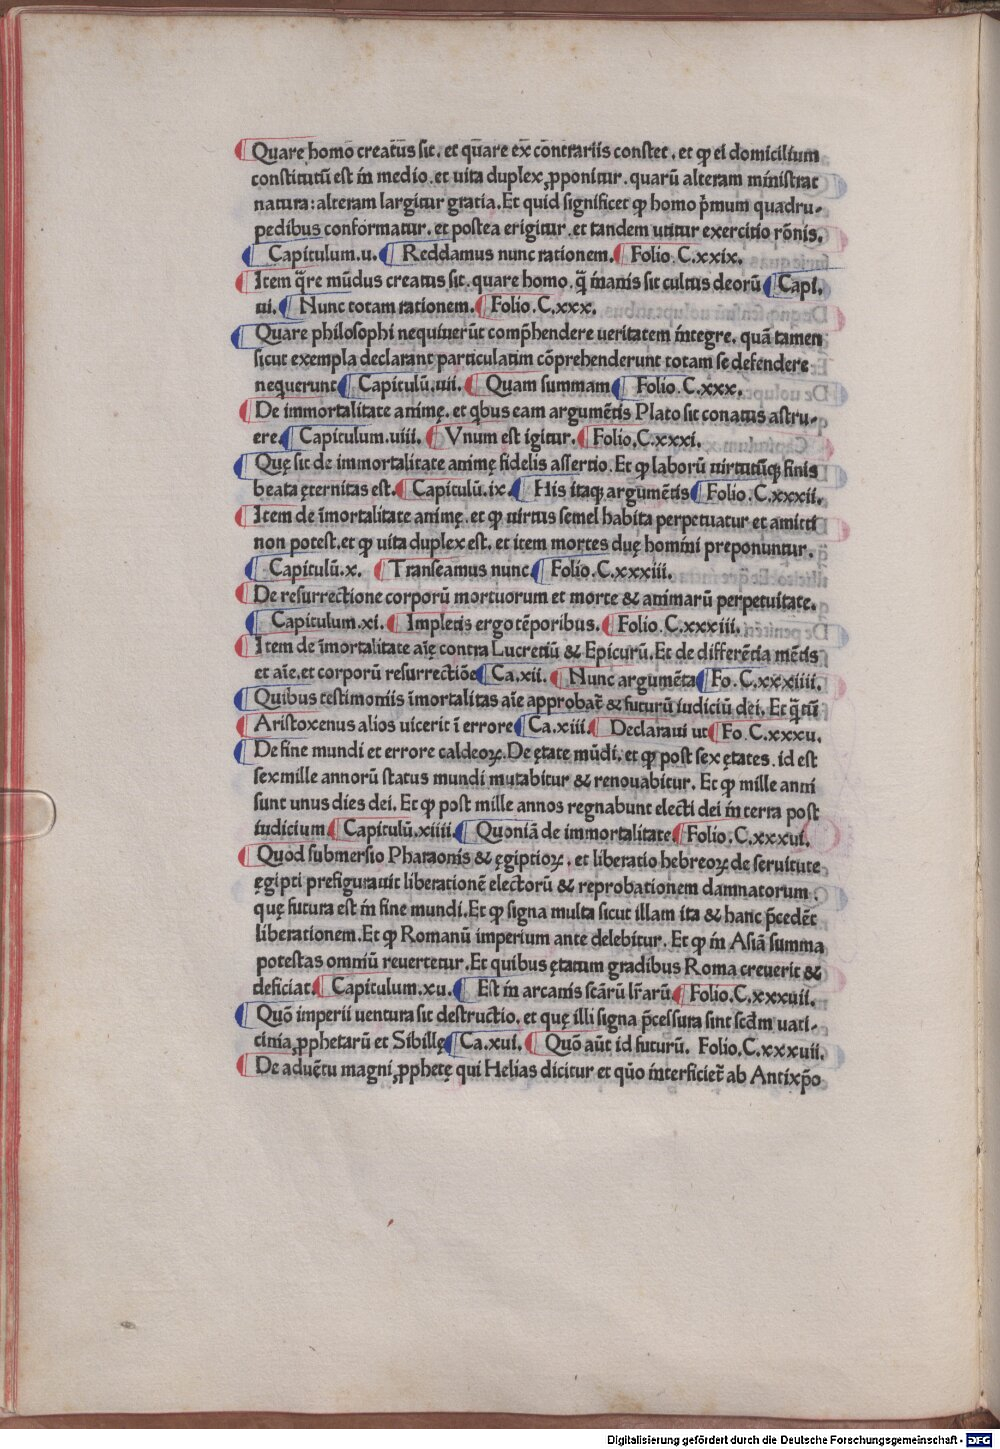 Quare homo creatus sit. et quare ex contrariis constet. et ꝙ ei domicilium
constitutū est in medio. et uita duplex ꝓponitur. quarū alteram ministrat
natura: alteram largitur gratia. Et quid significet ꝙ homo p̄mum quadru-
pedibus conformatur. et postea erigitur. et tandem utitur exercitio rōnis.
Capitulum.u. Reddamus nunc rationem. Folio.C.xxix.
Item q̄re mūdus creatus sit. quare homo. q̄ inanis sit cultus deorū Capi.
ui. Nunc totam rationem. Folio.C.xxx.
Quare philosophi nequiuerūt comp̄hendere ueritatem integre. quā tamen
sicut exempla declarant particulatim cōprehenderunt totam se defendere
nequerunt Capitulū.uii. Quam summam Folio.C.xxx.
De immortalitate animę. et qbus eam argumētis Plato sit conatus astru-
ere. Capitulum.uiii. Vnum est igitur. Folio.C.xxxi.
Quę sit de immortalitate animę fidelis assertio. Et ꝙ laborū uirtutūqꝫ finis
beata ęternitas est. Capitulū.ix. His itaqꝫ argumētis Folio.C.xxxii.
Item de īmortalitate animę. et ꝙ uirtus semel habita perpetuatur et amitti
non potest. et ꝙ uita duplex est. et item mortes duę homini preponuntur.
Capitulū.x. Transeamus nunc Folio.C.xxxiii.
De resurrectione corporū mortuorum et morte & animarū perpetuitate.
Capitulum.xi. Impletis ergo tēporibus. Folio.C.xxxiii.
Item de īmortalitate aīę contra Lucretiū & Epicurū. Et de differētia mētis
et aīe. et corporū resurrectiōe Ca.xii. Nunc argumēta Fo.C.xxxiiii.
Quibus testimoniis īmortalitas aīe approbat̄ & futurū iudiciū dei. Et q̄tū
Aristoxenus alios uicerit ī errore Ca.xiii. Declaraui ut Fo.C.xxxu.
De fine mundi et errore caldeoꝝ. De ętate mūdi. et ꝙ post sex ętates. id est
sex mille annorū status mundi mutabitur & renouabitur. Et ꝙ mille anni
sunt unus dies dei. Et ꝙ post mille annos regnabunt electi dei in terra post
iudicium Capitulū.xiiii. Quoniā de immortalitate Folio.C.xxxui.
Quod submersio Pharaonis & ęgiptioꝝ. et liberatio hebreoꝝ de seruitute
ęgipti prefigurauit liberationē electorū & reprobationem damnatorum.
quę futura est in fine mundi. Et ꝙ signa multa sicut illam ita & hanc p̄cedēt
liberationem. Et ꝙ Romanū imperium ante delebitur. Et ꝙ in Asiā summa
potestas omniū reuertetur. Et quibus ętatum gradibus Roma creuerit &
deficiat. Capitulum.xu. Est in arcanis scārū lr̄arū Folio.C.xxxuii.
Quō imperii uentura sit destructio. et quę illi signa p̄cessura sint scd̄m uati-
cinia ꝓphetarū et Sibillę Ca.xui. Quō aūt id futurū. Folio.C.xxxuii.
De aduētu magni ꝓphetę qui Helias dicitur et qūo interficiet̄ ab Antixp̄o
Digitalisierung gefördert durch die Deutsche Forschungsgemeinschaft - DFG